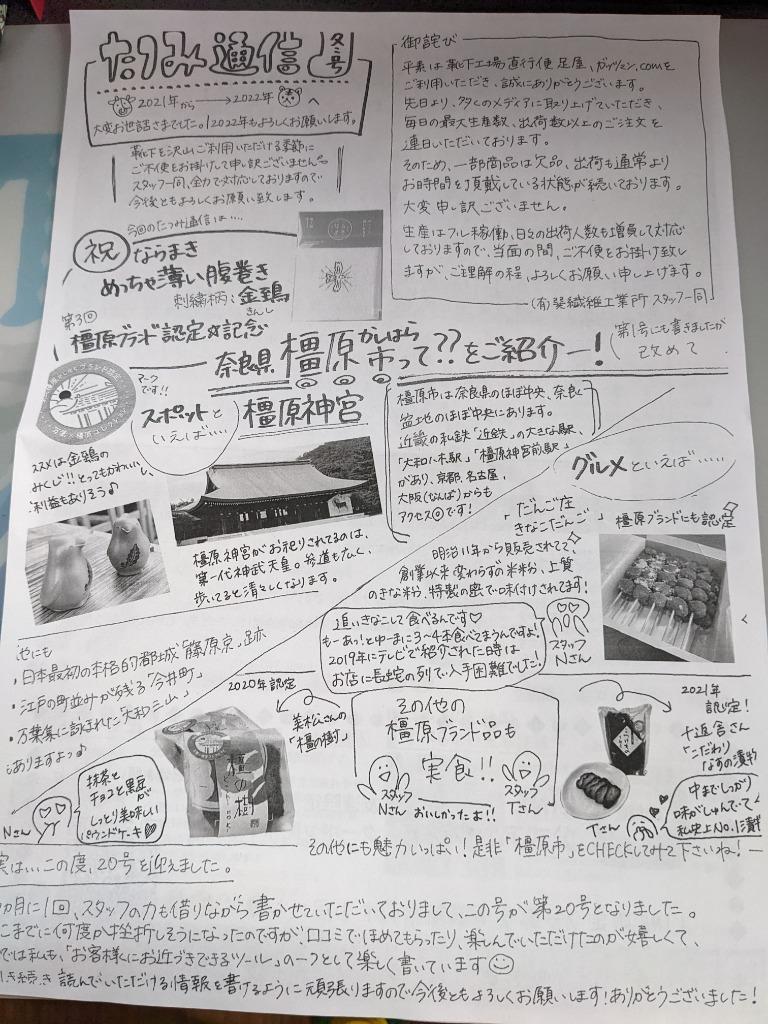 たつみ通信 冬号
2021年から → 2022年へ
大変お世話さまでした。2022年もよろしくお願いします。
靴下を沢山ご利用いただける季節に
ご不便をお掛けして申し訳ございません
スタッフ一同、全力で対応しておりますので
今後ともよろしくお願い致します。
御詫び
平素は靴下工場直行便足屋、ガッツマン.comを
ご利用いただき、誠にありがとうございます。
先日より、多くのメディアに取り上げていただき、
毎日の最大生産数、出荷数以上のご注文を
連日いただいております。
そのため、一部商品は欠品、出荷も通常より
お時間を頂戴している状態が続いております。
大変申し訳ございません。
生産はフル稼働、日々の出荷人数も増員して対応
しておりますので、当面の間、ご不便をお掛け致し
ますが、ご理解の程、よろしくお願い申し上げます。
(有)巽繊維工業所 スタッフ一同
今回のたつみ通信は…
祝 ならまき
めっちゃ薄い腹巻き
刺繍柄:金鵄
きんし
第3回
橿原ブランド認定☆記念
奈良県橿原市って??をご紹介ー!
かしはら
(第1号にも書きましたが
改めて
マーク
です!!
スポットと
いえば‥‥
橿原神宮
橿原市は奈良県のほぼ中央、奈良
盆地のほぼ中央にあります。
近畿の私鉄「近鉄」の大きな駅、
「大和八木駅」「橿原神宮前駅」
があり、京都、名古屋、
大阪(なんば)からも
アクセス◎です!
ススメは金鵄の
みくじ!!とってもかわいいし、
利益もありそう♪
橿原神宮がお祀りされてるのは、
第一代神武天皇。参道も広く、
歩いてると清々しくなります。
グルメといえば‥‥‥
「だんご庄
きなこだんご」
橿原ブランドにも認定
明治11年から販売されてて、
創業以来変わらずの米粉、上質
のきな粉、特製の蜜で味付けされてます!
追いきなこして食べるんです♡
もーあっ!とゆーまに3〜4本食べてまうんですよ!
2019年にテレビで紹介された時は
お店に長蛇の列で入手困難でした!
スタッフ
Nさん
他にも
・日本最初の本格的都城「藤原京」跡
・江戸の町並みが残る「今井町」
・万葉集に詠まれた「大和三山」
ありますよっ♪
2020年認定
菓松公さんの
「橿の樹」
橿の樹
抹茶と
チョコと黒豆が
しっとり美味しい
パウンドケーキ♡
Nさん
その他の
橿原ブランド品も
実食!!
スタッフ
Nさん
おいしかったよ!!
スタッフ
Tさん
2021年
認定!
十返舎さん
「こだわり
なすの漬物」
中までしっかり
味がしゅんでて
私史上No.1漬物
Tさん
その他にも魅力いっぱい!是非「橿原市」をCHECKしてみて下さいね!ー
実は…この度、20号を迎えました。
カ月に1回、スタッフの力も借りながら書かせていただいておりまして、この号が第20号となりました。
こまでに何度か挫折しそうになったのですが、口コミでほめてもらったり、楽しんでいただけたのが嬉しくて、
では私も、「お客様にお近づきできるツール」の一つとして楽しく書いています
き続き読んでいただける情報を書けるように頑張りますので今後ともよろしくお願いします!ありがとうございました!